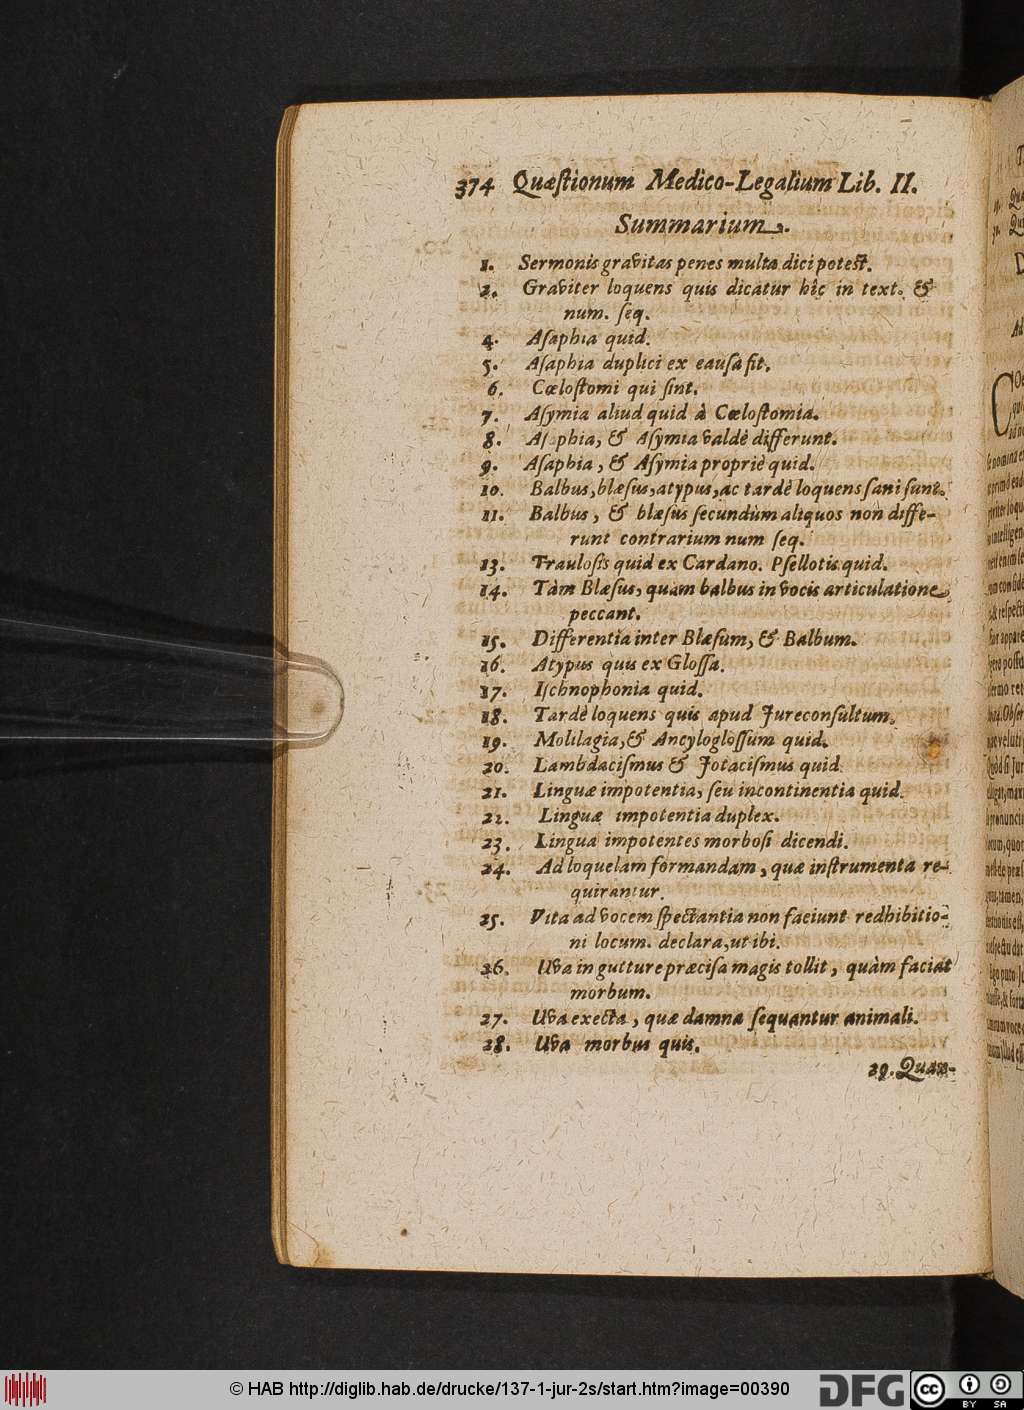 374 Quæſtionum Medico-Legalium Lib. II.
Summarium.
1. Sermonis gravitas penes multa dici poteſt.
2. Graviter loquens quis dicatur hîc in text. &
num. ſeq.
4. Aſaphia quid.
5. Aſaphia duplici ex cauſâ fit.
6. Cœloſtomi qui ſint.
7. Aſymia aliud quid à Cœloſtomia.
8. Aſaphia, & Aſymia valdè differunt.
9. Aſaphia, & Aſymia propriè quid.
10. Balbus, blæſus, atypus, ac tardè loquens ſani ſunt.
11. Balbus, & blæſus ſecundùm aliquos non diffe-
runt contrarium num ſeq.
13. Trauloſis quid ex Cardano. Pſellotis quid.
14. Tàm Blæſus, quàm balbus in vocis articulatione
peccant.
15. Differentia inter Blæſum, & Balbum.
16. Atypus quis ex Gloſſa.
17. Iſchnophonia quid.
18. Tardè loquens quis apud Jureconſultum.
19. Molilagia, & Ancylogloſſum quid.
20. Lambdaciſmus & Jotaciſmus quid.
21. Linguæ impotentia, ſeu incontinentia quid.
22. Linguæ impotentia duplex.
23. Lingua impotentes morboſi dicendi.
24. Ad loquelam formandam, quæ inſtrumenta re-
quirantur.
25. Vita ad vocem ſpectantia non faciunt redhibitio-
ni locum. declara, ut ibi.
26. Uva in gutture præciſa magis tollit, quàm faciat
morbum.
27. Uva execta, quæ damna ſequantur animali.
28. Uva morbus quis.
29. Quan-
© HAB http://diglib.hab.de/drucke/137-1-jur-2s/start.htm?image=00390
DFG
cc
BY SA